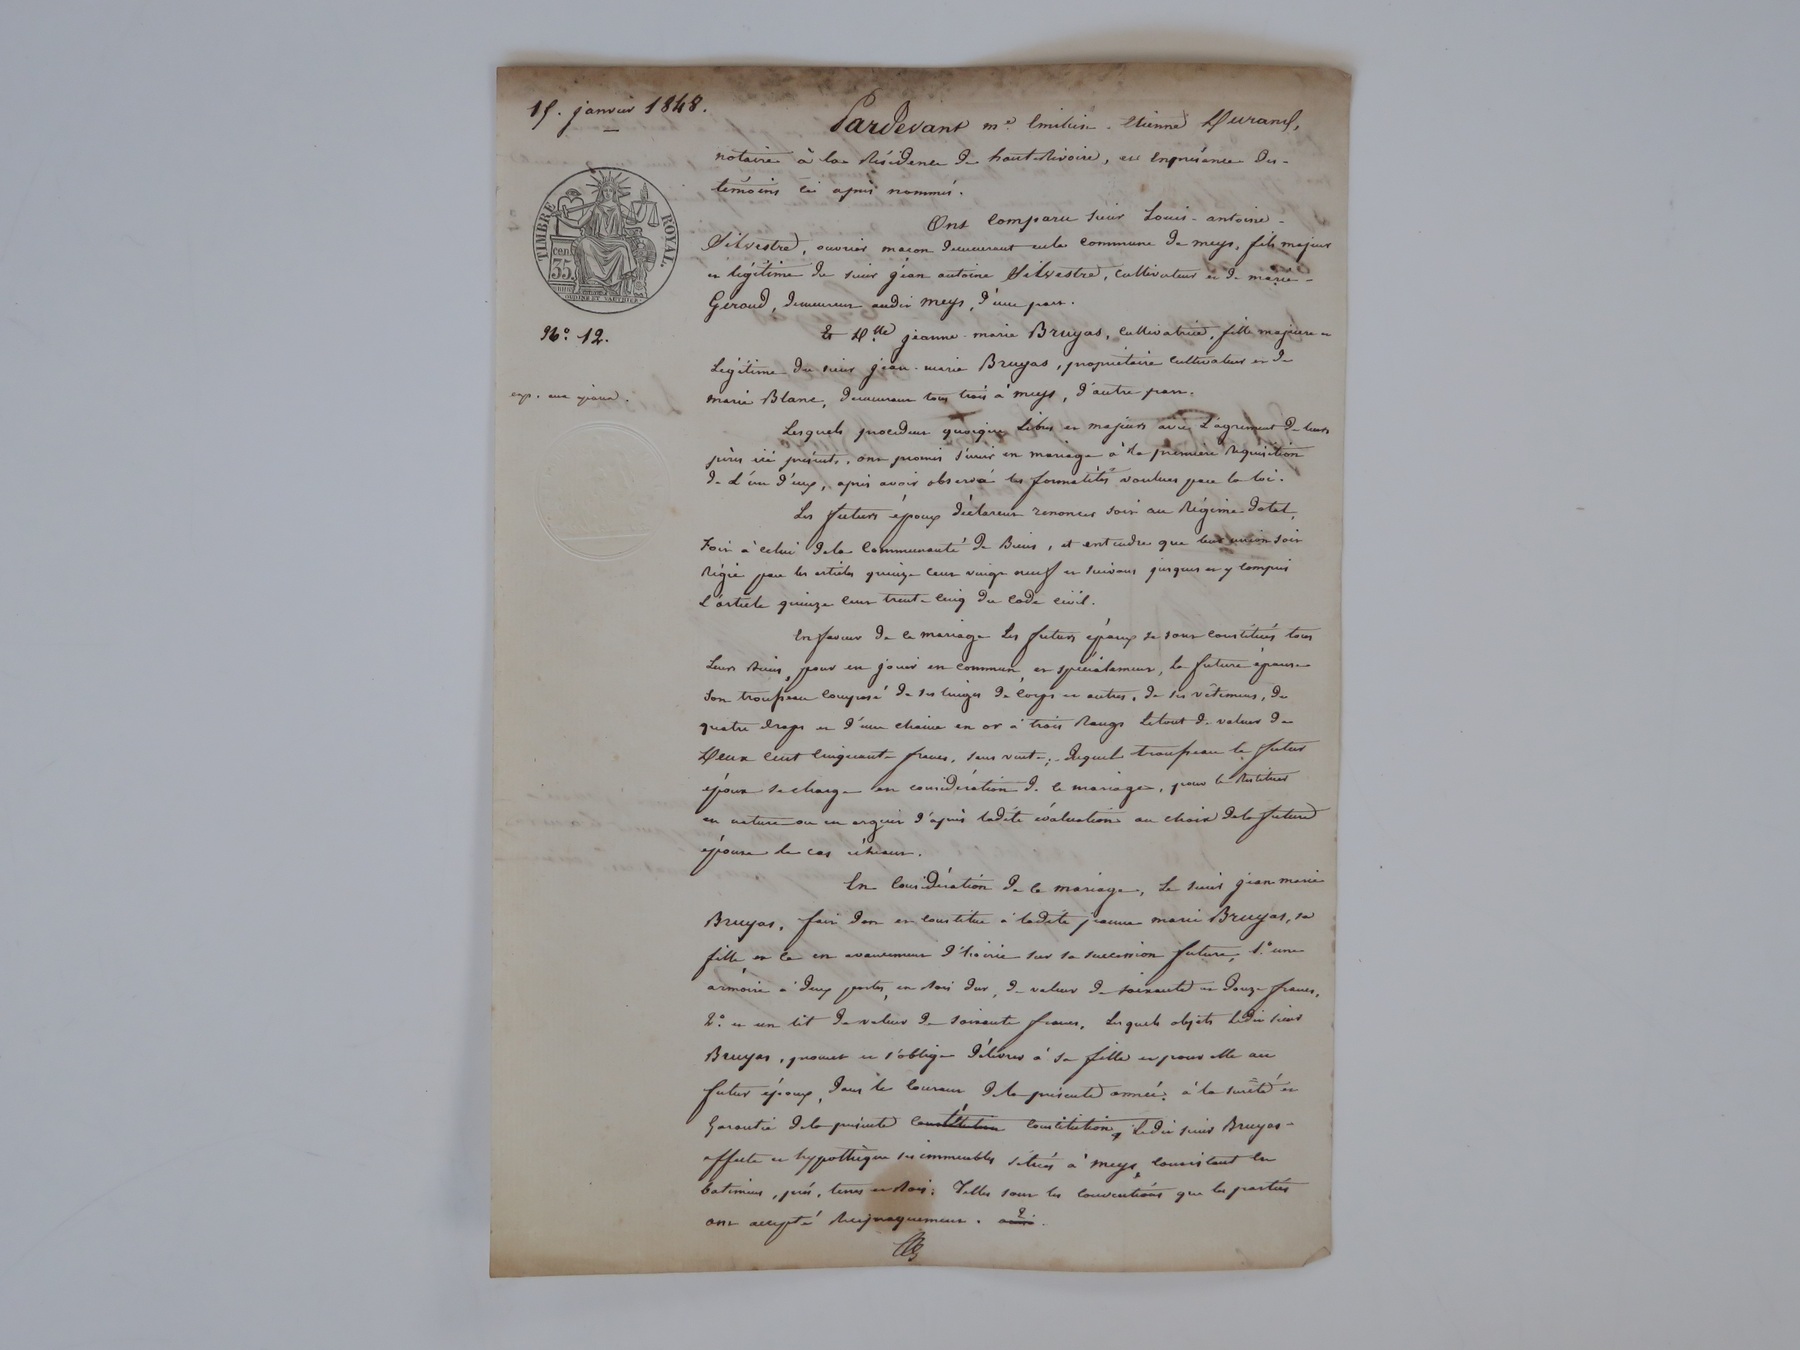 15. janvier 1848.
TIMBRE ROYAL.
cen
35
No. 12.
Pardevant me. Emilien-Etienne Durand,
notaire à la Résidence de hautRivoire, et enprésence des
témoins ci après nommés.
Ont comparu sieur Louis-antoine
Silvestre, ouvrier maçon demeurant enla commune de meys, fils majeur
et légitime du sieur jean antoine Silvestre, cultivateur et de marie
Geroud, demeurant audit meys, d'une part.
Et Dlle jeanne-marie Bruyas, cultivatrice, fille majeure et
Légitime du sieur jean-marie Bruyas, propriétaire cultivateur et de
marie Blanc, demeurant tous trois à meys, d'autre part.
Lesquels procédant quoique Libres et majeurs avec L'agrément de leurs
pères ici présents, ont promis s'unir en mariage à la première Réquisition
de L'un d'eux, après avoir observé les formalités voulues par la loi.
Les futurs époux déclarent renoncer soit au Régime dotal,
soit à celui dela Communauté de Biens, et entendre que leur union soit
Régie par les articles quinze cent vingt neuf et suivans jusques et y compris
L'article quinze cent trente cinq du code civil.
En faveur de ce mariage Les futurs époux se sont constitués tous
Leurs Biens, pour en jouir en commun et spécialement, La future épouse
Son trousseau composé de ses linges de corps et autres, de ses vêtemens, de
quatre draps et d'une chaine en or à trois Rangs Letout de valeur de
Deux cent cinquante francs, sans vente; duquel trousseau le futur
époux se charge en considération de ce mariage, pour le Restituer
en nature ou en argent d'après ladite évaluation au choix dela future
épouse le cas échéant.
En considération de ce mariage, Le sieur jean marie
Bruyas, fait don et constitue à ladite jeanne marie Bruyas, sa
fille et ce en avancement d'hoirie sur sa succession future, 1.° une
armoire à deux portes, en Bois dur, de valeur de soixante et douze francs,
2.° et un lit de valeur de soixante francs, Lesquels objets Ledit sieur
Bruyas, promet et s'oblige délivrer à sa fille et pour elle au
futur époux, dans le courant dela présente année. à la sureté et
Garantie dela présente constitution constitution, Ledit sieur Bruyas
affecte et hypothèque ses immeubles situés à meys, consistant en
Batimens, prés, terres et Bois; Telles sont les conventions que les parties
ont accepté Réciproquement.